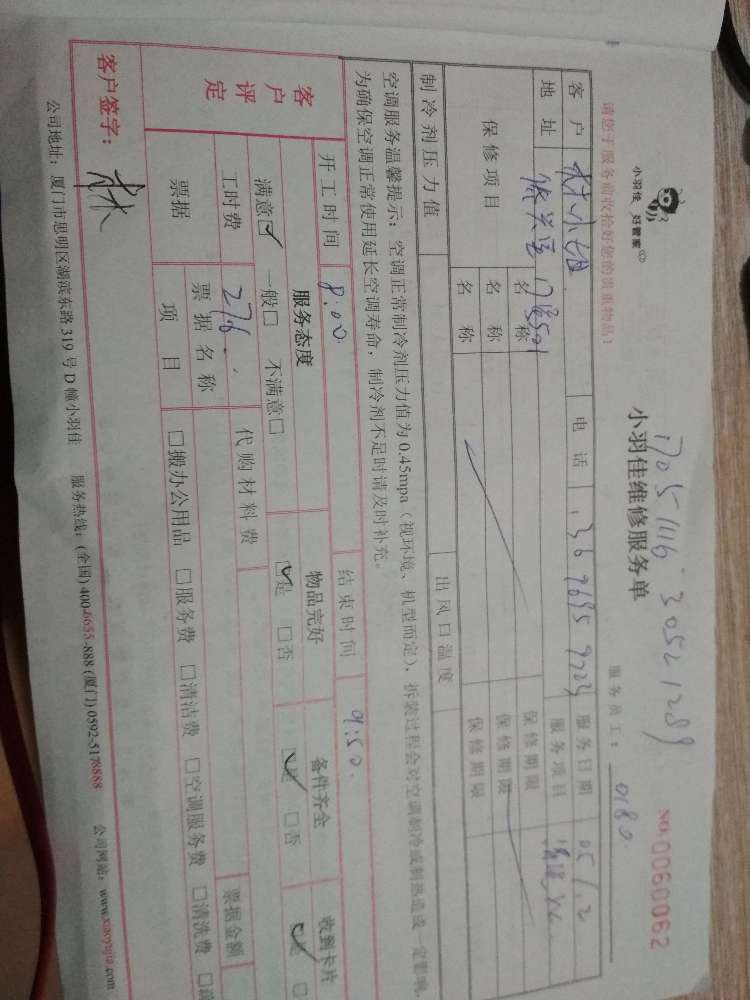 小羽佳 好管家
请您于服务前收拾好您的贵重物品！
小羽佳维修服务单
服务员工： 0180
NO.0060062
客户 林小姐 电话 服务日期 05/12
地址 服务项目
保修项目 名称 保修期限
名称 保修期限
名称 保修期限
制冷剂压力值 出风口温度
空调服务温馨提示：空调正常制冷剂压力值为0.45mpa（视环境、机型而定），拆装过程会对空调制冷或制热造成一定影响，
为确保空调正常使用延长空调寿命，制冷剂不足时请及时补充。
开工时间 8:00. 结束时间 9:50.
客户评定 服务态度 物品完好 备件齐全 收到卡片
满意☑ 一般□ 不满意□ ☑是 □否 ☑是 □否 ☑是 □
工时费 276. 代购材料费
票据 票据名称 票据金额
项目 □搬办公用品 □服务费 □清洁费 □空调服务费 □清洗费
客户签字： 林
公司地址：厦门市思明区湖滨东路319号D幢小羽佳 服务热线：(全国)400-6655-888 (厦门)0592-5178888 公司网站：www.xiaoyujia.com